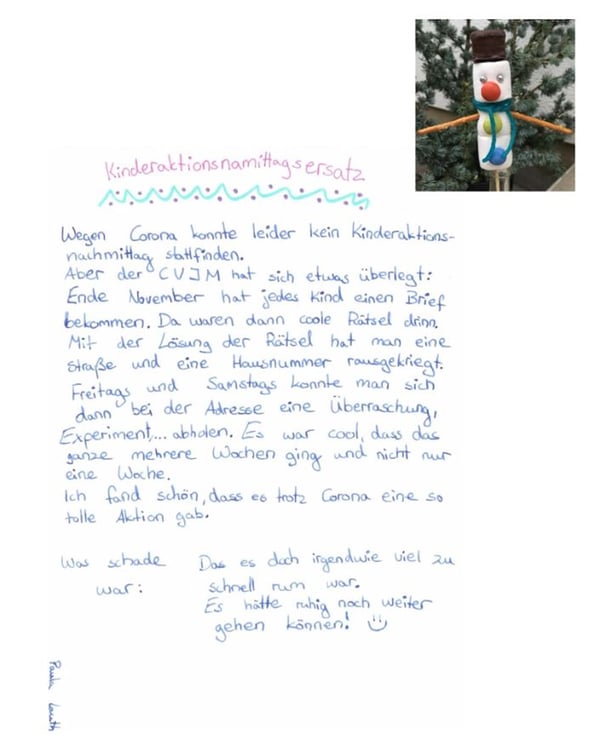 Kinderaktionsnamittagsersatz
Wegen Corona konnte leider kein Kinderaktions-
nachmittag stattfinden.
Aber der CVJM hat sich etwas überlegt:
Ende November hat jedes Kind einen Brief
bekommen. Da waren dann coole Rätsel drinn.
Mit der Lösung der Rätsel hat man eine
Straße und eine Hausnummer rausgekriegt.
Freitags und Samstags konnte man sich
dann bei der Adresse eine Überraschung,
Experiment,... abholen. Es war cool, dass das
ganze mehrere Wochen ging und nicht nur
eine Woche.
Ich fand schön, dass es trotz Corona eine so
tolle Aktion gab.
Was schade war:
Das es doch irgendwie viel zu
schnell rum war.
Es hätte ruhig noch weiter
gehen können!
Paula